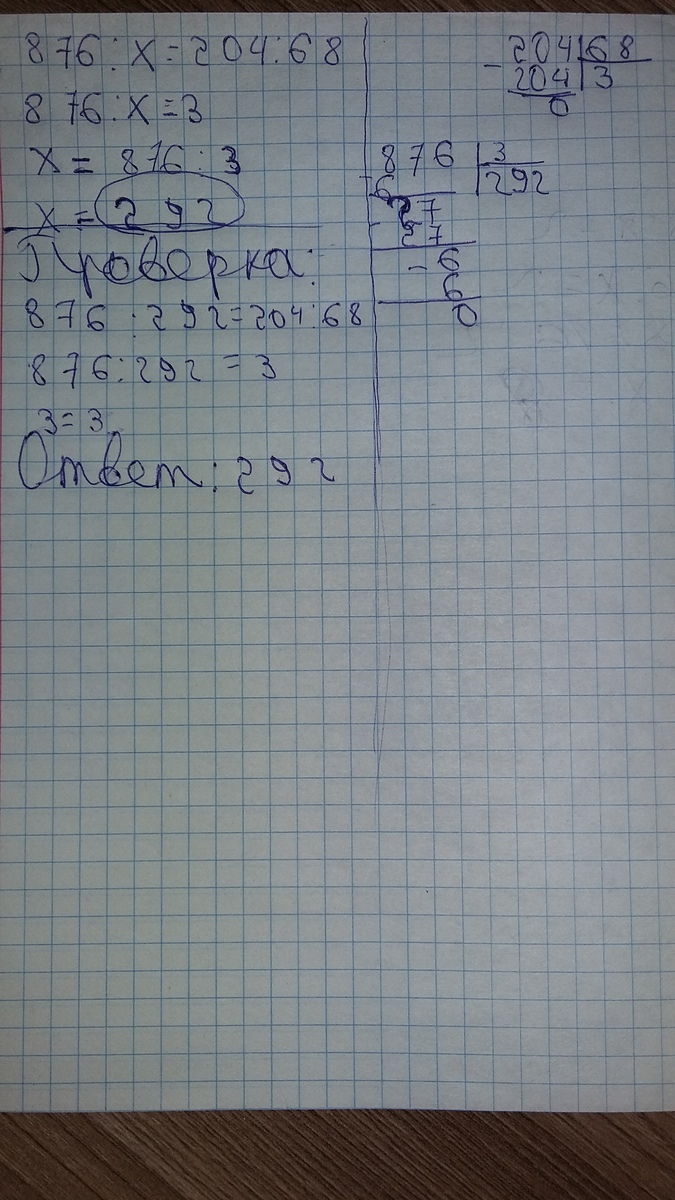 876:x=204:68
876:x=3
x= 876:3
x= 292
Проверка:
876:292=204:68
876:292=3
3=3
Ответ: 292
-204|68
204|3
0
876|3
-6|292
27
-27
-6
6
0